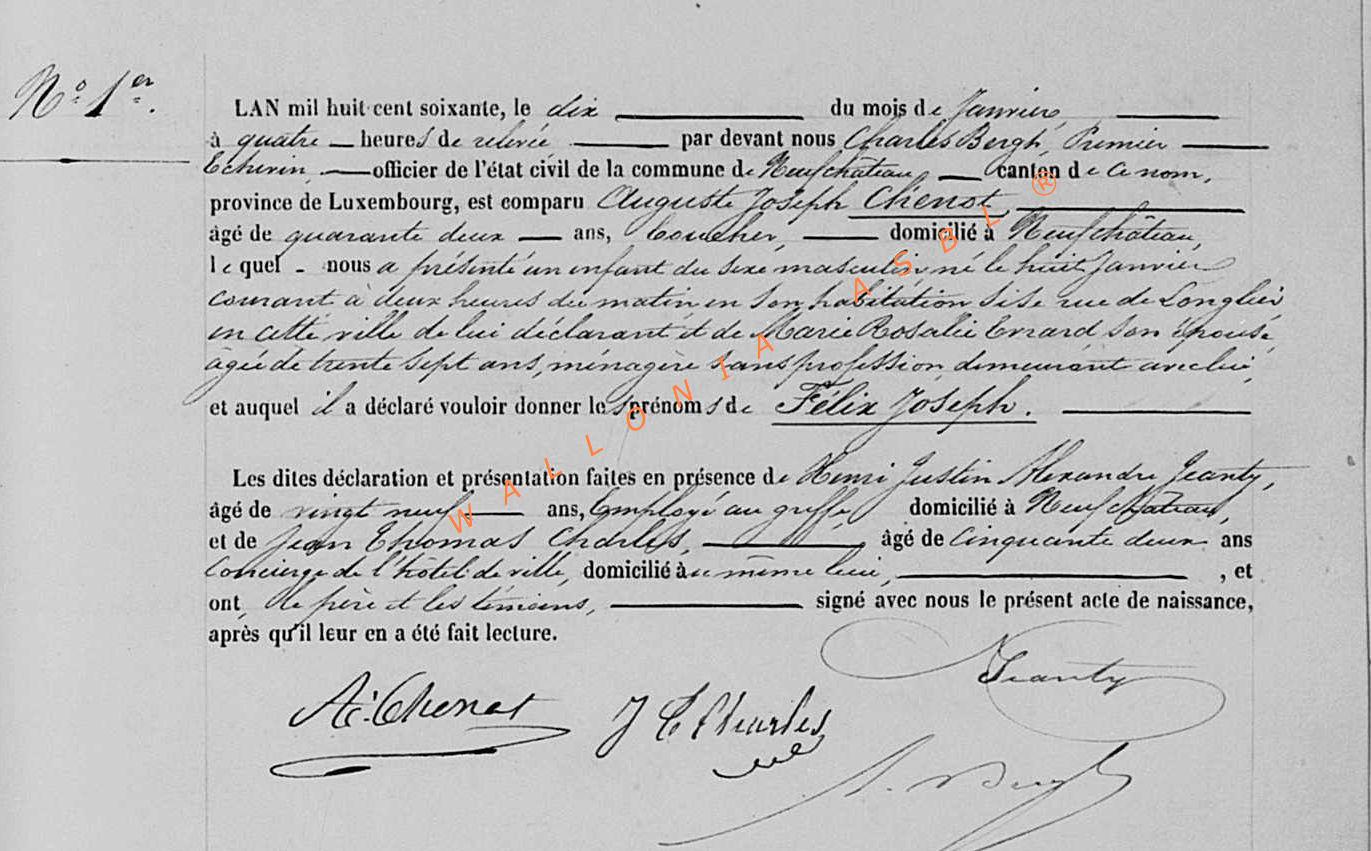 N° 1er.
LAN mil huit cent soixante, le dix du mois de Janvier,
à quatre heures de relevée par devant nous Charles Bergh, Premier
Echevin, officier de l'état civil de la commune de Neufchâteau, canton de ce nom,
province de Luxembourg, est comparu Auguste Joseph Chenot,
âgé de quarante deux ans, domicilié à Neufchâteau,
lequel nous a présenté un enfant du sexe masculin né le huit Janvier
courant à deux heures du matin en son habitation sise rue de Longlier
en cette ville de lui déclarant et de Marie Rosalie Errard son épouse,
âgée de trente sept ans, ménagère sans profession, demeurant avec lui,
et auquel il a déclaré vouloir donner les prénoms de Félix Joseph.
Les dites déclaration et présentation faites en présence de Henri Justin Alexandre Jeanty,
âgé de vingt neuf ans, Employé au greffe, domicilié à Neufchâteau,
et de Jean Thomas Charles, âgé de cinquante deux ans
Concierge de l'hôtel de ville, domicilié au même lieu, , et
ont, le père et les témoins, signé avec nous le présent acte de naissance,
après qu'il leur en a été fait lecture.
Jeanty
A. Chenot J T Charles
Bergh
WALLONIA ASBL ®